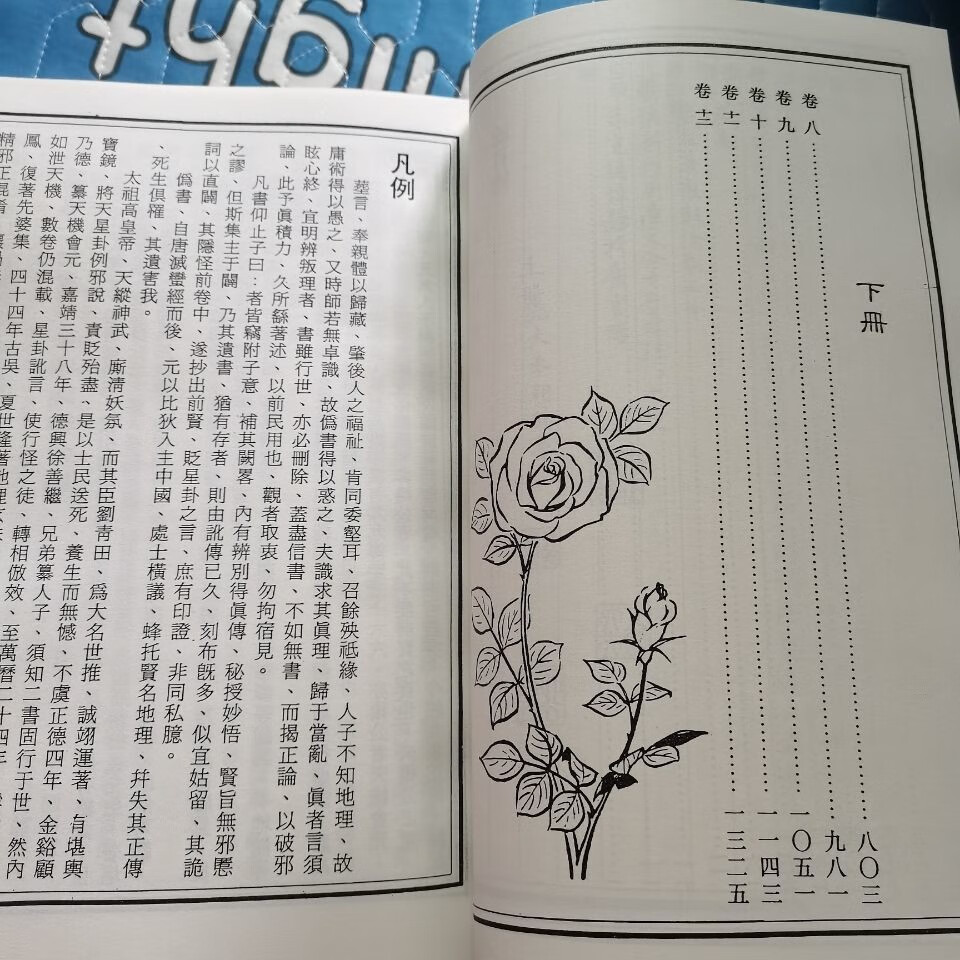 下冊
卷八……八〇三
卷九……九八一
卷十……一〇五一
卷十一……一一四三
卷十二……一三二五
凡例
葬言、奉親體以歸藏、肇後人之福祉、肯同委壑耳、召餘殃祗緣、人子不知地理、故
庸術得以愚之、又時師若無卓識、故僞書得以惑之、夫識求其眞理、歸于當亂、眞者言須
眩心終、宜明辨叛理者、書雖行世、亦必刪除、蓋盡信書、不如無書、而揭正論、以破邪
論、此予眞積力、久所繇著述、以前民用也、觀者取衷、勿拘宿見。
凡書仰止子曰:者皆竊附子意、補其闕畧、內有辨別得眞傳、秘授妙悟、賢旨無邪慝
之謬、但斯集主于闢、乃其遺書、猶有存者、則由訛傳已久、刻布旣多、似宜姑留、其詭
詞以直闢、其隱怪前卷中、遂抄出前賢、貶星卦之言、庶有印證、非同私臆。
僞書、自唐滅蠻經而後、元以比狄入主中國、處士橫議、蜂托賢名地理、幷失其正傳
、死生俱罹、其遺害我。
太祖高皇帝、天縱神武、廝淸妖氛、而其臣劉靑田、爲大名世推、誠翊運著、有堪輿
寶鏡、將天星卦例邪說、責貶殆盡、是以士民送死、養生而無憾、不虞正德四年、金谿顧
乃德、纂天機會元、嘉靖三十八年、德興徐善繼、兄弟纂人子、須知二書固行于世、然內
如泄天機、數卷仍混載、星卦訛言、使行怪之徒、轉相倣效、至萬曆二十四年
鳳、復著先婆集、四十四年古吳、夏世隆著地理
精邪正混淆